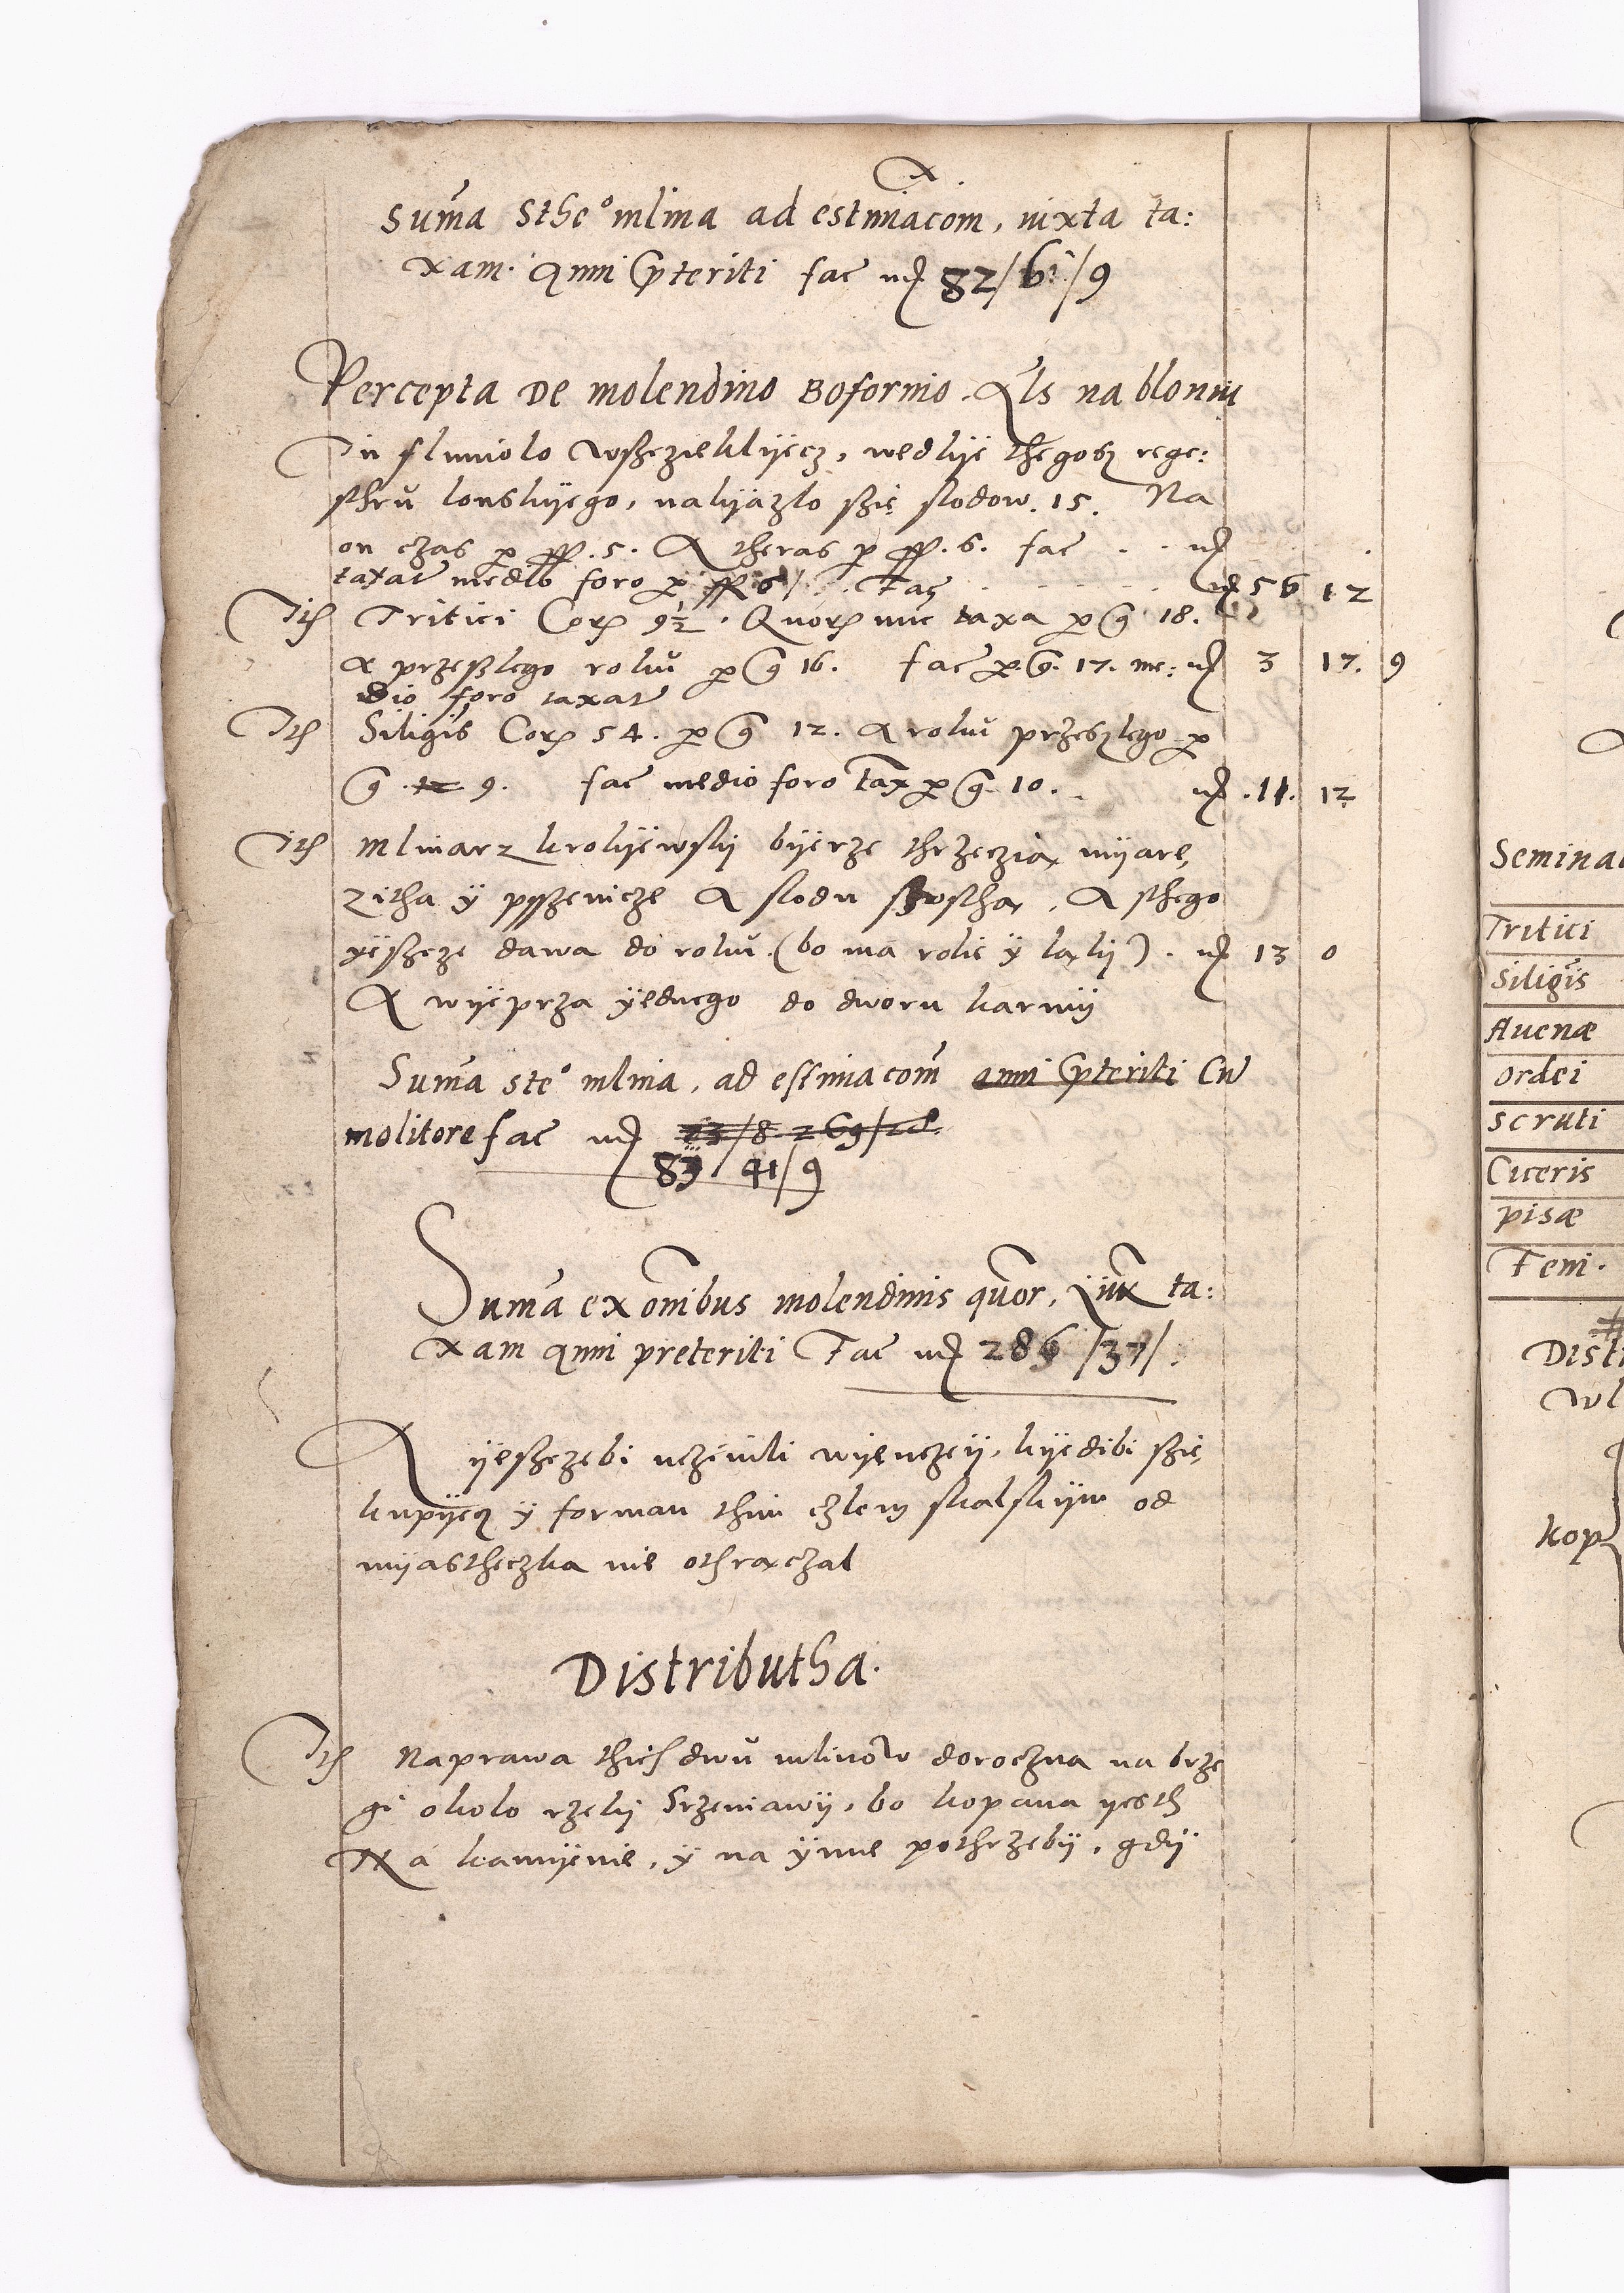 Sum̃a Sthe° mlina ad estimacom, iuxta ta:
xam. anni pteriti fac mͬ 82/6/9
Percepta De molendino Boformio. Als na bloniu
In fluuiolo wszeziekliyecz, wedlye thegosz rege:
sthrŭ lonskiyego, nalyazlo szię slodow. 15. Na
on czas p 5. A theras p 6. fac . . mͬ
taxat medio foro p 6/. Fac mͬ 56 12
Itͫ Tritici Corͫ 9½. Quorͫ nūc taxa p g 18.
a przeszlego rokŭ p g 16. fac p g. 17. me: mͬ 3 17. 9
dio foro taxat
Itͫ Siliginis Corͫ 54. p g 12. a rokŭ przeszlego p
g 9. fac medio foro tax p g 10. mͬ .11. 12
Itͫ Mlinarz krolyewsky byerze thrzeczią myarę,
zitha y pszenicze A slodu szosthą, A sthego
yeszcze dawa do rokŭ (bo ma rolie y ląky). mͬ 13 0
A wyeprza yednego do dworu karmy
Sum̃a ste° mlina, ad estimacom̃ anni pteriti Cū
molitore fac mͬ
83 41/9
Sum̃a ex om̃ibus molendinis quor, iux ta:
xam anni preteriti Fac mͬ 286/37/.
A yeszczebi uczinili wyenczey, kyedibi szię
kupyecz y forman thim czlem skalskym od
myastheczka nie othrączal
Distributha.
Itͫ Naprawa thich dwŭ mlinow doroczna na brze
gi okolo rzeky Srzeniawy, bo kopana yesth
Na kamyenie, y na ynne pothrzeby, gdy
Seminat
Tritici
Siliginis
Auenæ
Ordei
Scruti
Ciceris
pisæ
Feni.
Distr
wl
kop